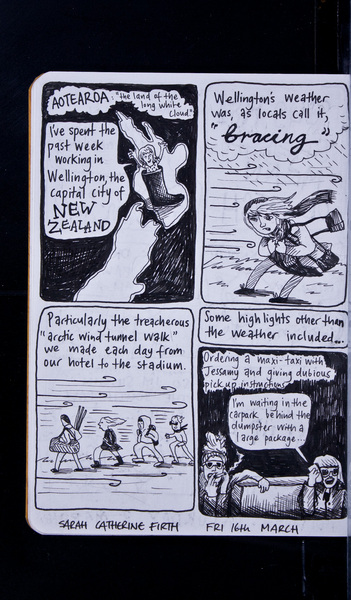 AOTEAROA: "the land of the
long white
cloud"
I've spent the
past week
working in
Wellington, the
capital city of
NEW
ZEALAND
Wellington's weather
was, as locals call it,
"bracing"
Particularly the treacherous
"arctic wind tunnel walk"
we made each day from
our hotel to the stadium.
Some highlights other than
the weather included...
Ordering a maxi-taxi with
Jessamy and giving dubious
pick up instructions
I'm waiting in the
carpark behind the
dumpster with a
large package...
SARAH CATHERINE FIRTH
FRI 16th MARCH